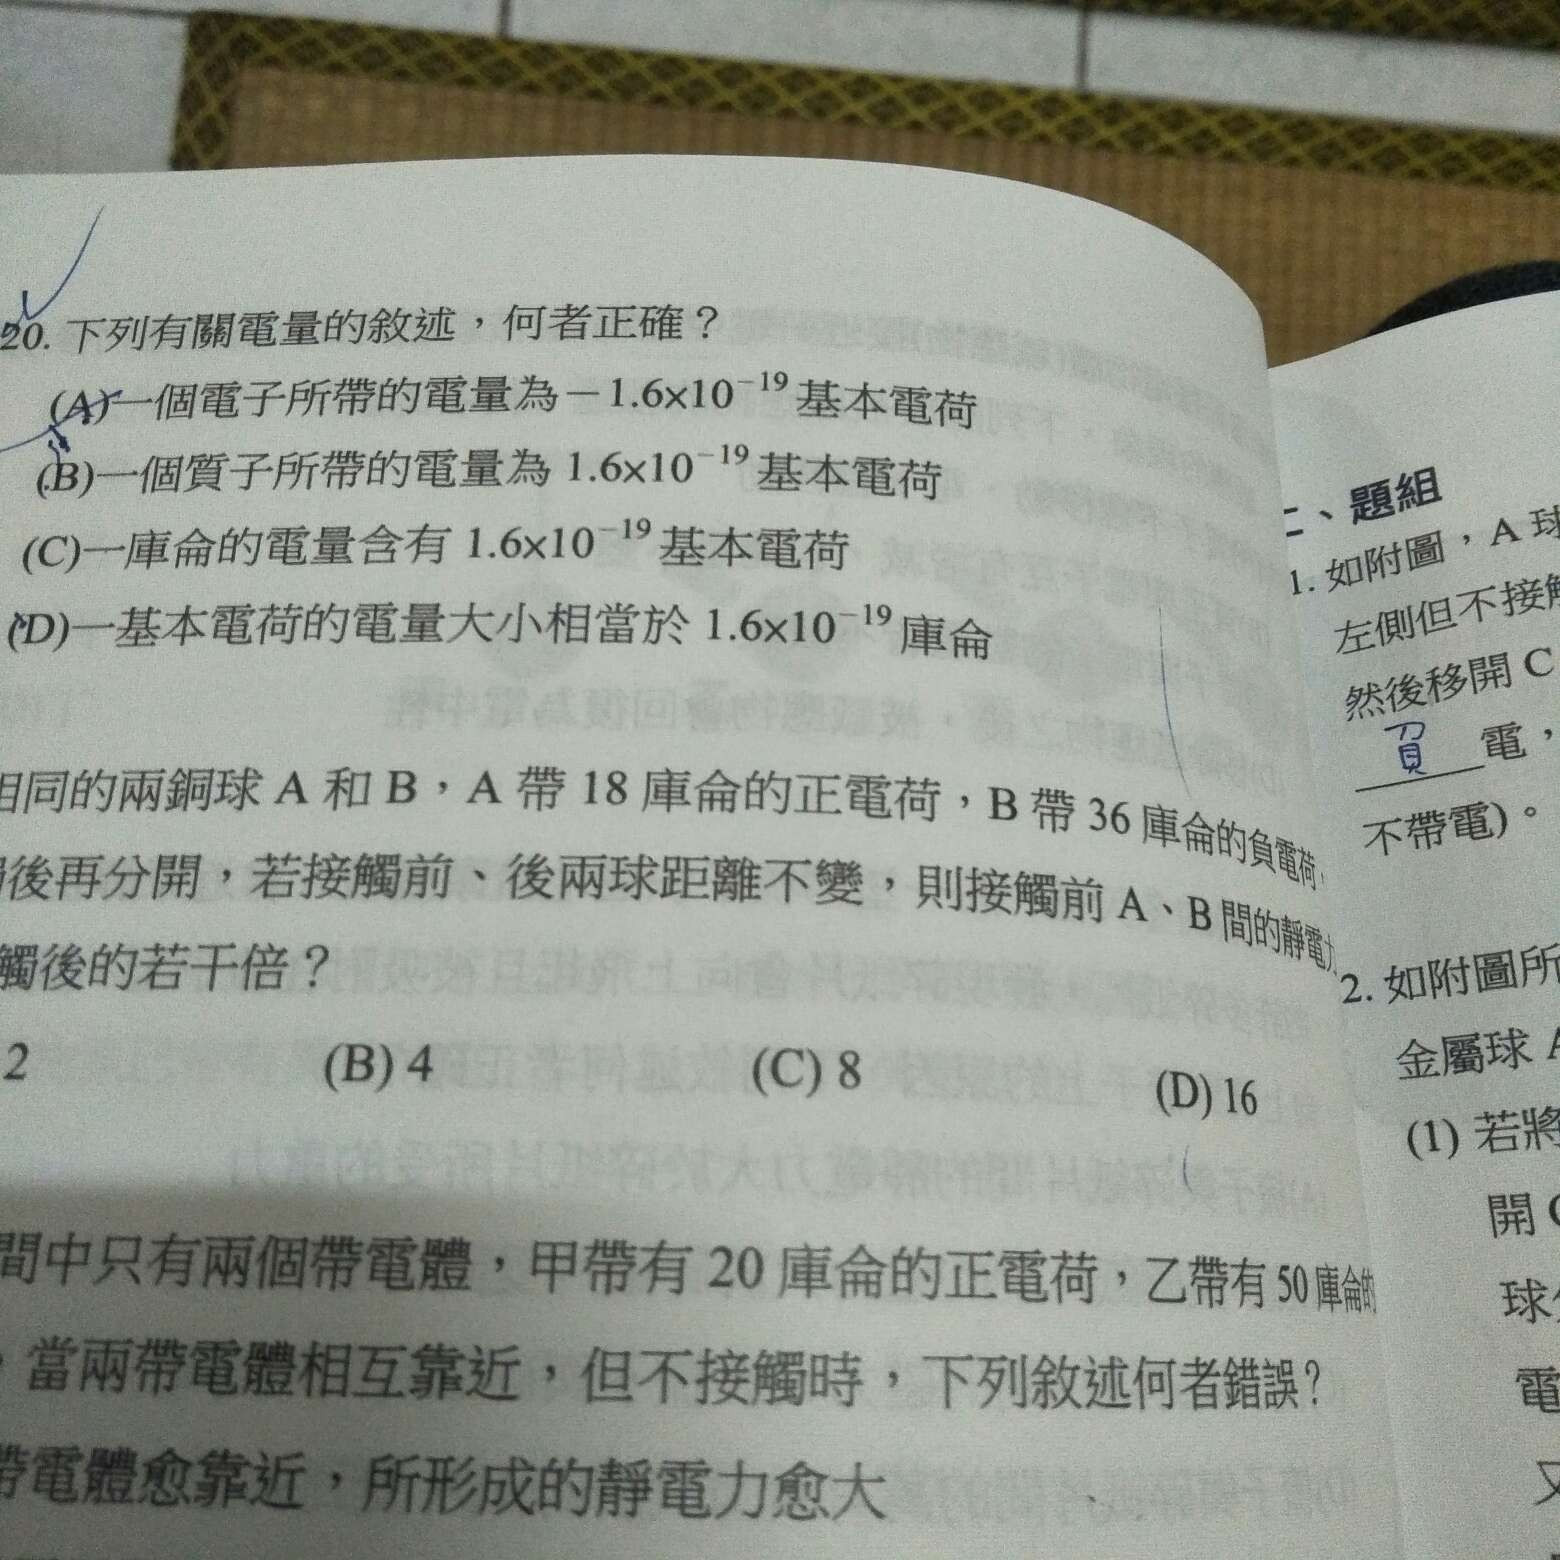 20. 下列有關電量的敘述，何者正確？
(A)一個電子所帶的電量為－1.6×10⁻¹⁹ 基本電荷
(B)一個質子所帶的電量為 1.6×10⁻¹⁹ 基本電荷
(C)一庫侖的電量含有 1.6×10⁻¹⁹ 基本電荷
(D)一基本電荷的電量大小相當於 1.6×10⁻¹⁹ 庫侖
相同的兩銅球 A 和 B，A 帶 18 庫侖的正電荷，B 帶 36 庫侖的負電荷，
後再分開，若接觸前、後兩球距離不變，則接觸前 A、B 間的靜電力
觸後的若干倍？
2 (B) 4 (C) 8 (D) 16
間中只有兩個帶電體，甲帶有 20 庫侖的正電荷，乙帶有 50 庫侖的
，當兩帶電體相互靠近，但不接觸時，下列敘述何者錯誤？
帶電體愈靠近，所形成的靜電力愈大
二、題組
1. 如附圖，A 球
左側但不接觸
然後移開 C
負 電，
不帶電)。
2. 如附圖所
金屬球 A
(1) 若將
開 C
球
電
又